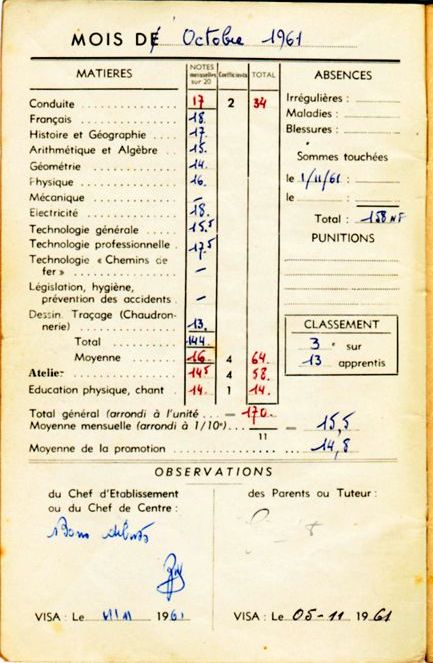 MOIS DE Octobre 1961
MATIERES
NOTES mensuelles sur 20
Coefficients
TOTAL
Conduite 17 2 34
Français 18.
Histoire et Géographie 17.
Arithmétique et Algèbre 15.
Géométrie 14.
Physique 16.
Mécanique –
Electricité 18.
Technologie générale 15.5
Technologie professionnelle 17.5
Technologie « Chemins de
fer » –
Législation, hygiène,
prévention des accidents –
Dessin. Traçage (Chaudron-
nerie) 13.
Total 144
Moyenne 16 4 64.
Atelier 14.5 4 58.
Education physique, chant 14. 1 14.
Total général (arrondi à l'unité = 170.
Moyenne mensuelle (arrondi à 1/10e) 11 = 15,5
Moyenne de la promotion 14,8
ABSENCES
Irrégulières :
Maladies :
Blessures :
Sommes touchées
le 1/11/61 :
le :
Total : 158 NF
PUNITIONS
CLASSEMENT
3 e sur
13 apprentis
OBSERVATIONS
du Chef d'Etablissement
ou du Chef de Centre :
Bons débuts
VISA : Le 1961
des Parents ou Tuteur :
VISA : Le 05-11 1961